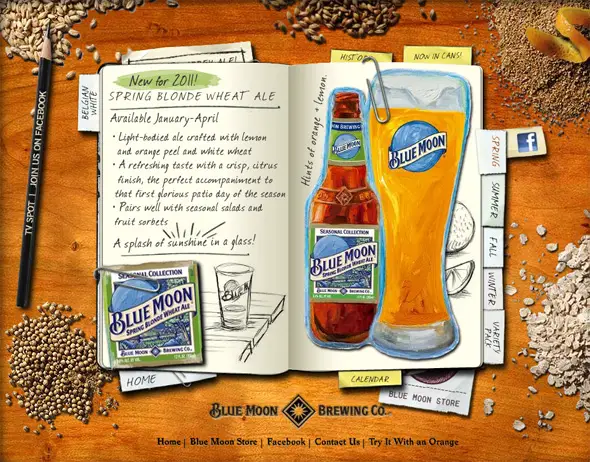 HISTORY
NOW IN CANS!
TV SPOT | JOIN US ON FACEBOOK
BELGIAN
WHITE
New for 2011!
SPRING BLONDE WHEAT ALE
Available January-April
• Light-bodied ale crafted with lemon
and orange peel and white wheat
• A refreshing taste with a crisp, citrus
finish, the perfect accompaniment to
that first glorious patio day of the season
• Pairs well with seasonal salads and
fruit sorbets
A splash of sunshine in a glass!
SEASONAL COLLECTION
BLUE MOON
SPRING BLONDE WHEAT ALE
BLUE MOON BREWING CO.
BLUE MOON
HOME
Hints of orange + lemon.
BREWING
SEASONAL COLLECTION
BLUE MOON
SPRING BLONDE WHEAT ALE
BLUE MOON BREWING CO.
BLUE MOON
f
SPRING
SUMMER
FALL
WINTER
VARIETY
PACK
CALENDAR
BLUE MOON STORE
BLUE MOON BREWING CO.
Home | Blue Moon Store | Facebook | Contact Us | Try It With an Orange